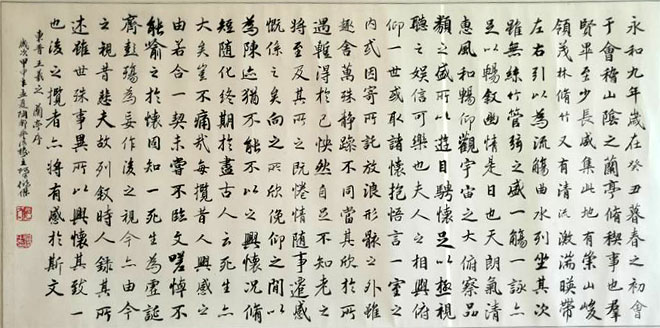 永和九年歲在癸丑暮春之初會
于會稽山陰之蘭亭脩稧事也群
賢畢至少長咸集此地有崇山峻
領茂林脩竹又有清流激湍暎帶
左右引以為流觴曲水列坐其次
雖無絲竹管弦之盛一觴一詠亦
足以暢敘幽情是日也天朗氣清
惠風和暢仰觀宇宙之大俯察品
類之盛所以遊目騁懷足以極視
聽之娛信可樂也夫人之相與俯
仰一世或取諸懷抱悟言一室之
內或因寄所託放浪形骸之外雖
趣舍萬殊靜躁不同當其欣於所
遇暫得於己怏然自足不知老之
將至及其所之既惓情隨事遷感
慨係之矣向之所欣俛仰之間以
為陳迹猶不能不以之興懷況脩
短隨化終期於盡古人云死生亦
大矣豈不痛哉每攬昔人興感之
由若合一契未嘗不臨文嗟悼不
能喻之於懷固知一死生為虛誕
齊彭殤為妄作後之視今亦由今
之視昔悲夫故列敘時人錄其所
述雖世殊事異所以興懷其致一
也後之攬者亦將有感於斯文
東晉王羲之蘭亭序
歲次甲申年孟夏